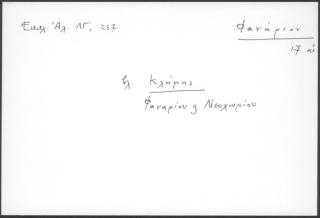 Ἐκκλ. Ἀλ. ΛΓ', 267
Φανάριον
17 αἰ
βλ. Κλήμης
Φαναρίου & Νεοχωρίου